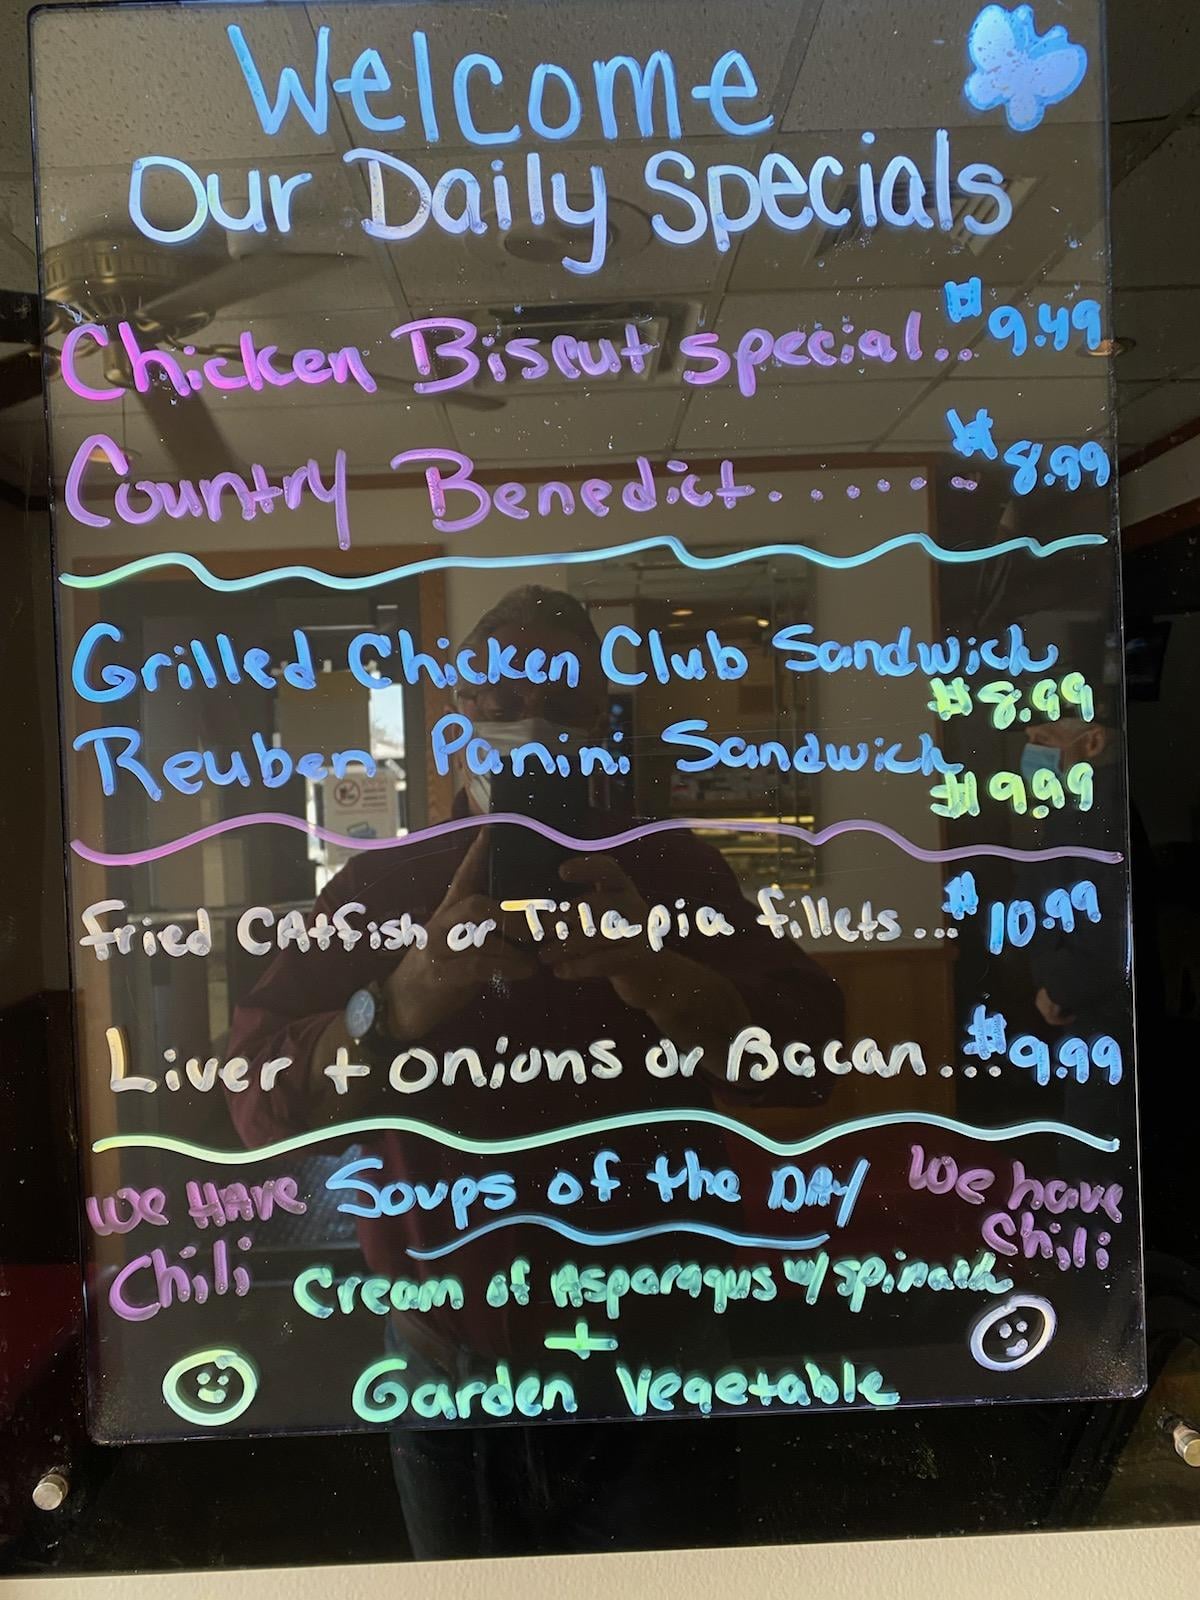 Welcome
Our Daily Specials
Chicken Biscut special... $9.49
Country Benedict....... $8.99
Grilled Chicken Club Sandwich
$8.99
Reuben Panini Sandwich
$9.99
fried CAtfish or Tilapia fillets... $10.99
Liver + onions or Bacan.... $9.99
We HAVe Soups of the DAy We have
Chili Chili
Cream of Asparagus w/ spinach
+
Garden Vegetable